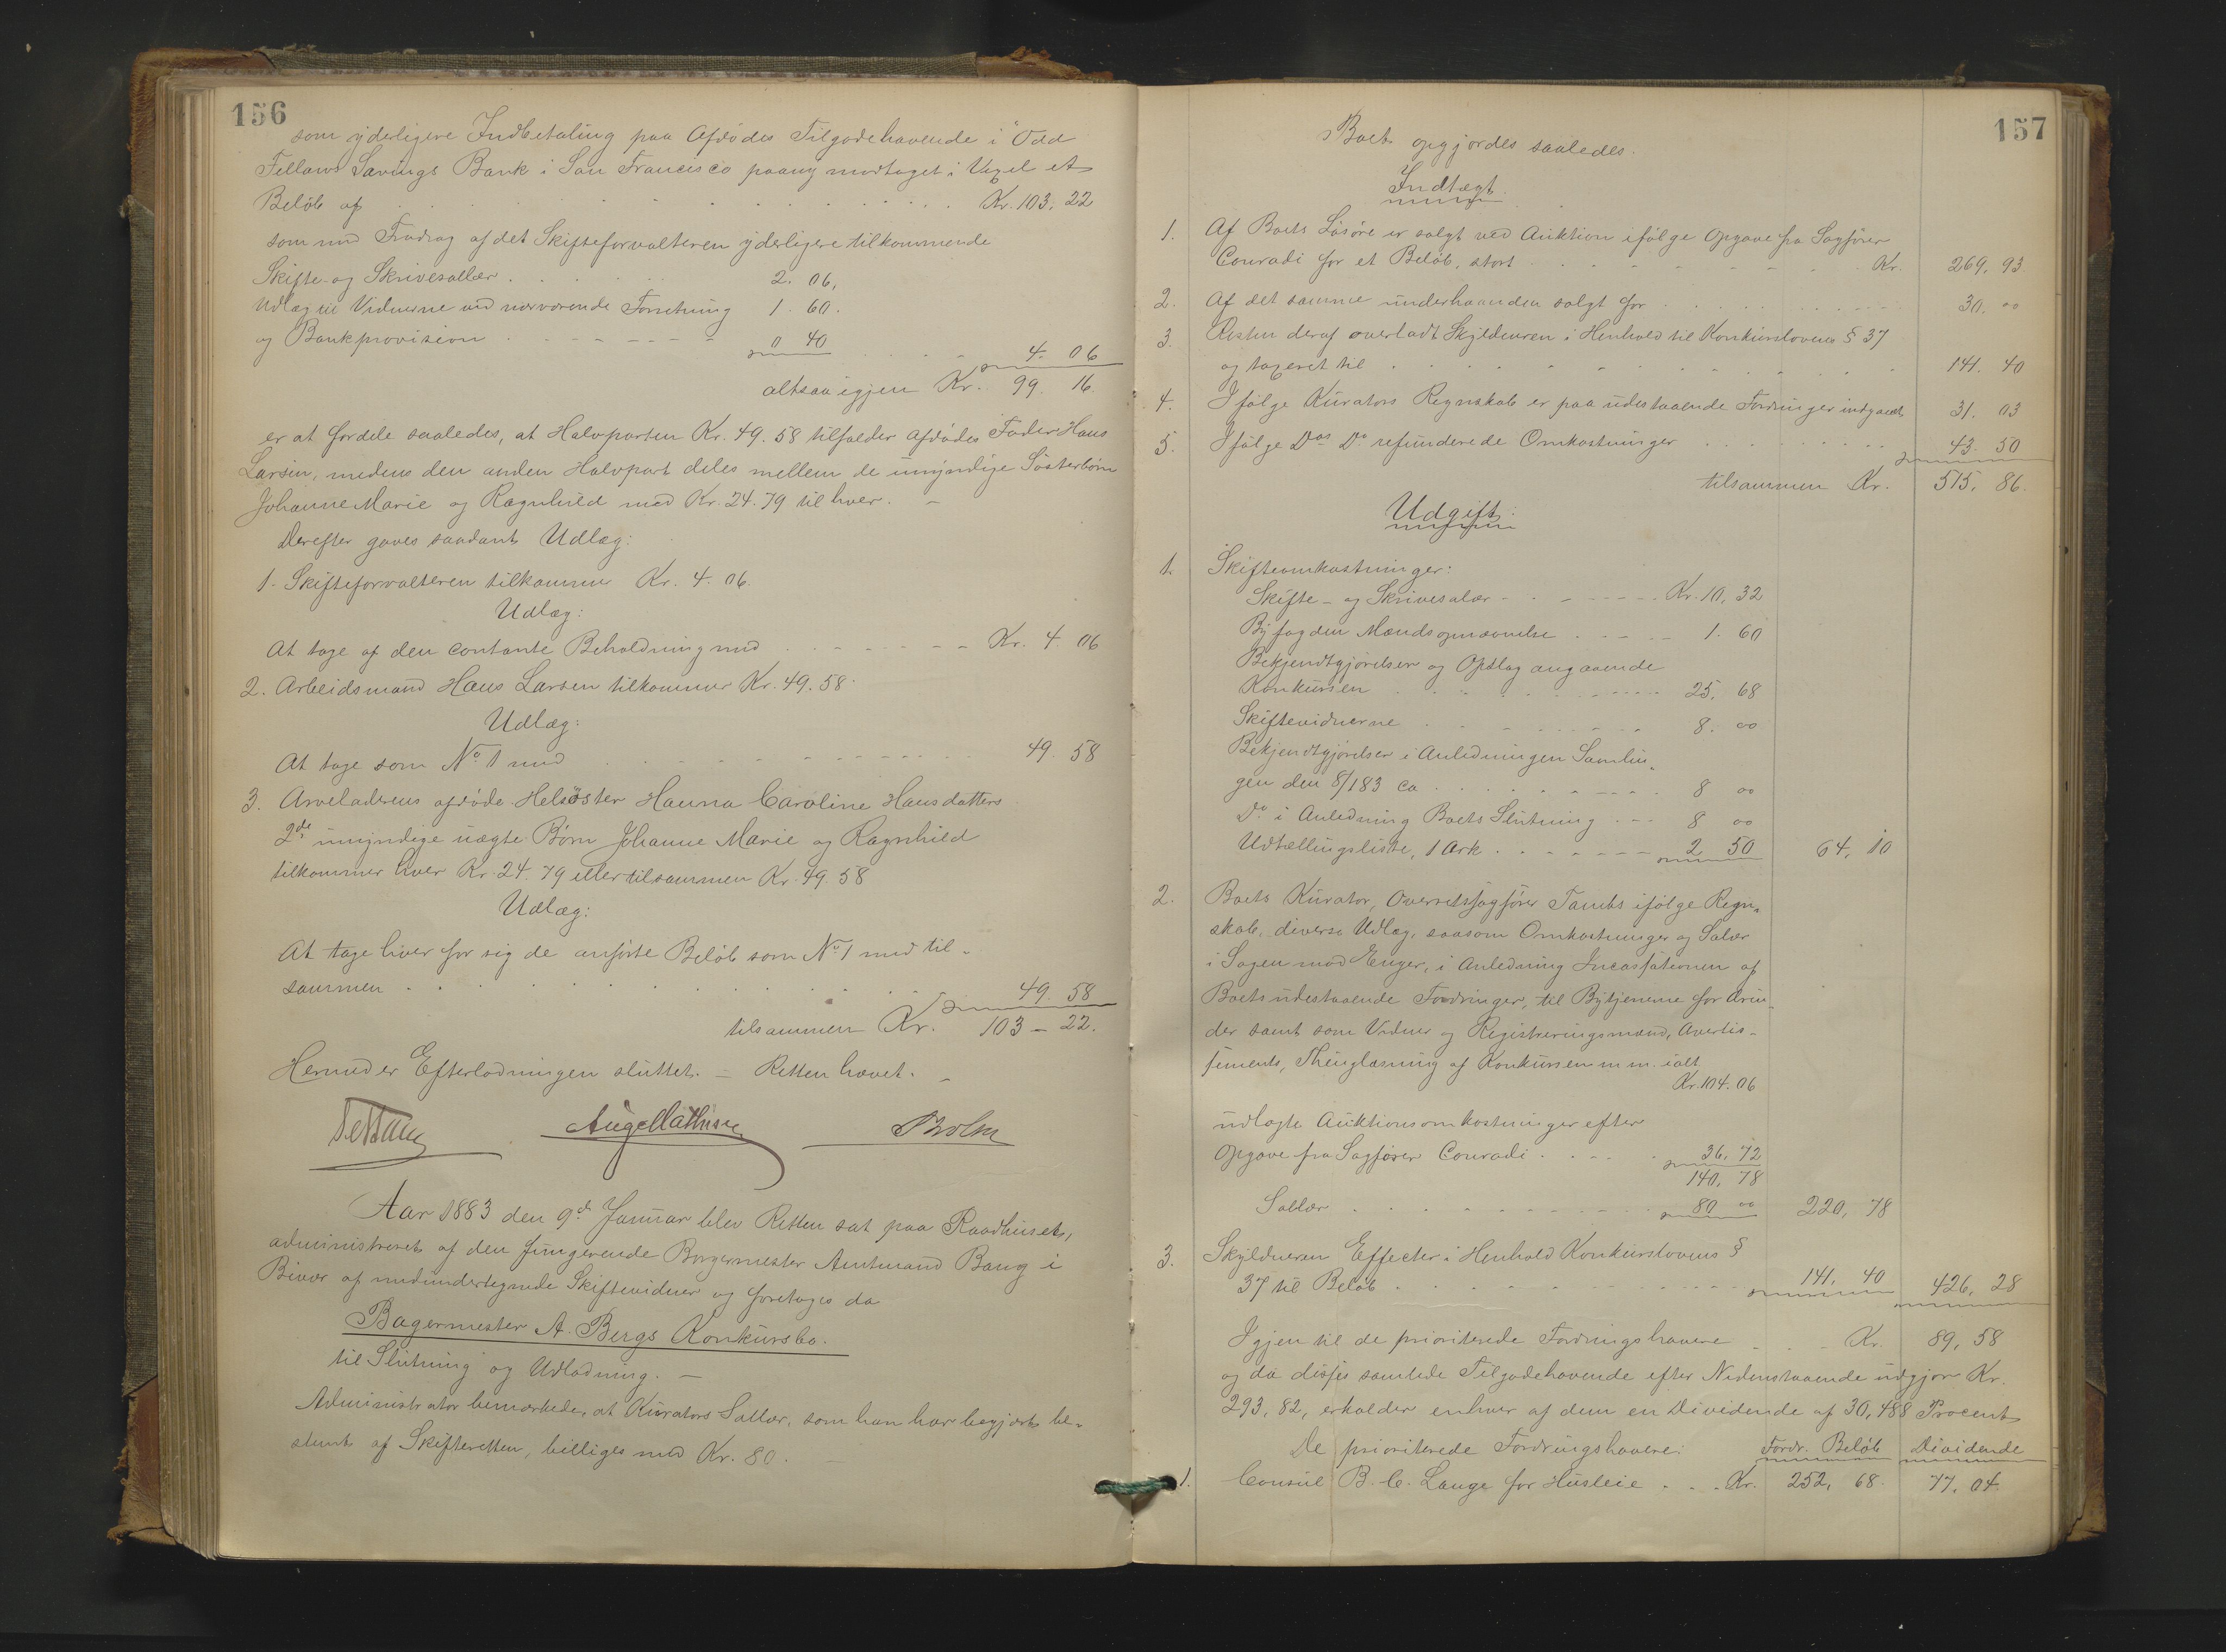 156
som yderligere Indbetaling paa Afdødes Tilgodehavende i "Odd
Fellows Savings Bank i San Francisco paany modtaget i Vexel et
Beløb af Kr. 103. 22
som med Fradrag af det Skifteforvalteren yderligere tilkommende
Skifte- og Skrivesallær 2. 06.
Udlæg til Vidnerne ved nærværende Forretning 1. 60.
og Bankprovision 0 40
4. 06
altsaa igjen Kr. 99. 16.
er at fordele saaledes, at Halvparten Kr. 49. 58 tilfalder Afdødes Fader Hans
Larsen, medens den anden Halvpart deles mellem de umyndige Søsterbørn
Johanne Marie og Ragnhild med Kr. 24. 79 til hver. –
Derefter gaves saadant Udlæg:
1. Skifteforvalteren tilkommer Kr. 4. 06.
Udlæg:
At tage af den contante Beholdning med Kr. 4 06
2. Arbeidsmand Hans Larsen tilkommer Kr. 49. 58.
Udlæg:
At tage som No 1 med 49. 58
3. Arveladerens afdøde Helsøster Hanna Caroline Hansdatters
2de umyndige uægte Børn Johanne Marie og Ragnhild
tilkommer hver Kr. 24. 79 eller tilsammen Kr. 49. 58
Udlæg:
At tage hver for sig de anførte Beløb som No 1 med til-
sammen 49. 58
tilsammen Kr. 103 – 22.
Hermed er Efterlodningen sluttet. – Retten hævet. –
Aug Mathisen
Holm
Aar 1883 den 9de Januar blev Retten sat paa Raadhuset,
administreret af den fungerende Borgermester Amtmand Bang i
Bivær af medundertegnede Skiftevidner og foretoges da
Bagermester A. Bergs Konkursbo.
til Slutning og Udlodning. –
Administrator bemærkede, at Kurators Sallær, som han har begjært be-
stemt af Skifteretten, billiges med Kr. 80. –
157
Boets opgjordes saaledes.
Indtægt.
1. Af Boets Løsøre er solgt ved Auktion ifølge Opgave fra Sagfører
Conradi for et Beløb, stort Kr. 269. 93
2. Af det samme underhaanden solgt for 30. 00
3. Resten deraf overladt Skyldneren i Henhold til Konkurslovens § 37
og taxeret til 141. 40
4. Ifølge Kurators Regnskab er paa udestaaende Fordringer indgaaet 31. 03
5. Ifølge Dos Do refunderede Omkostninger 43. 50
tilsammen Kr. 515. 86.
Udgift:
1. Skifteomkostninger:
Skifte- og Skrivesalær Kr. 10. 32
Byfogden Mændsopnævnelse 1. 60
Bekjendtgjørelser og Opslag angaaende
Konkursen 25. 68
Skiftevidnerne 8. 00
Bekjendtgjørelser i Anledningen Samlin-
gen den 8/1 83 ca 8 00
Do i Anledning Boets Slutning 8 00
Udtællingsliste, 1 Ark 2 50 64, 10
2. Boets Kurator, Overretssagfører Tambs ifølge Regn-
skab, diverse Udlæg, saasom Omkostninger og Salær
i Sagen mod Enger, i Anledning Incassationen af
Boets udestaaende Fordringer, til Bytjenerne for Ærin-
der samt som Vidner og Registreringsmænd, Avertis-
sements, Thinglæsning af Konkursen m. m. ialt
Kr. 104. 06
udlagte Auktionsomkostninger efter
Opgave fra Sagfører Conradi 36. 72
140. 78
Sallær 80 00 220, 78
3. Skyldneren Effecter i Henhold Konkurslovens §
37 til Beløb 141. 40 426. 28
Igjen til de prioriterede Fordringshavere Kr. 89, 58
og da disses samlede Tilgodehavende efter Nedenstaaende udgjør Kr.
293, 82, erholder enhver af dem en Dividende af 30,488 Procent
De prioriterede Fordringshavere: Fordr. Beløb Dividende
1. Consul B. C. Lange for Husleie Kr. 252, 68. 77. 04.